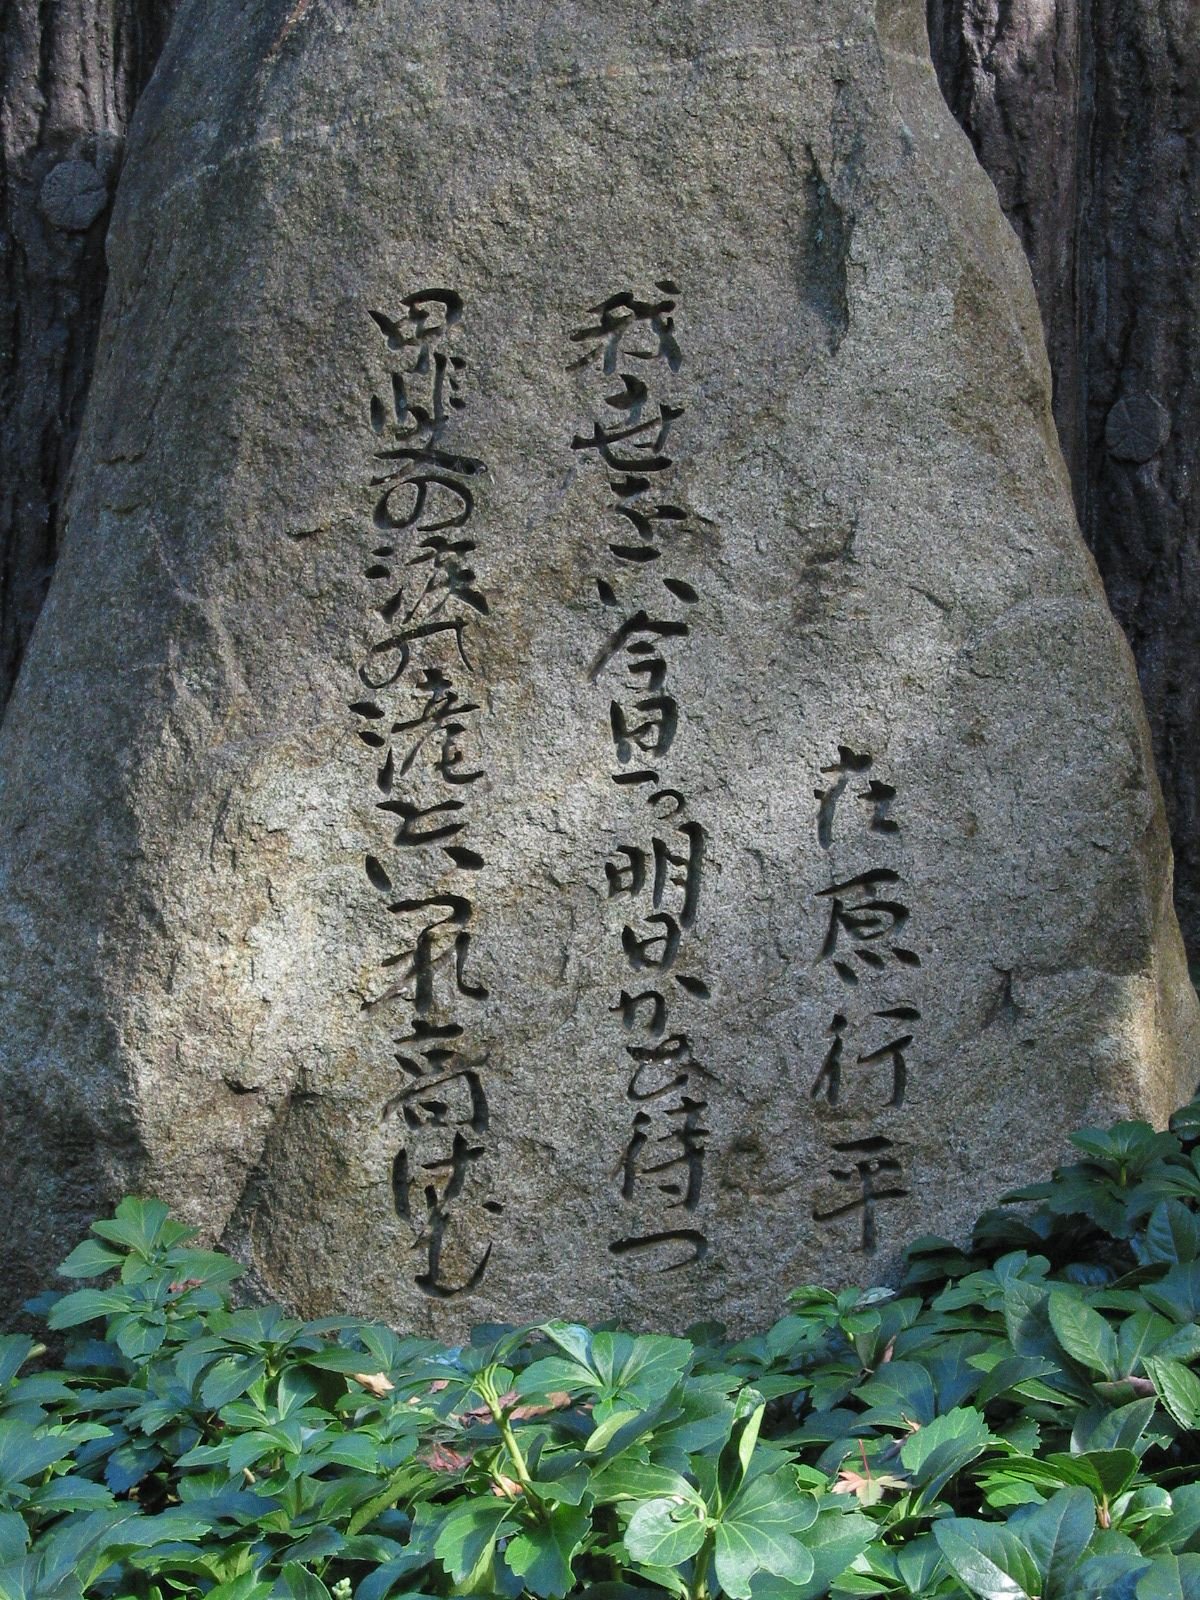 在原行平
我世をハ今日可明日かと待つ
甲斐の涙の瀧といつれ高けむ